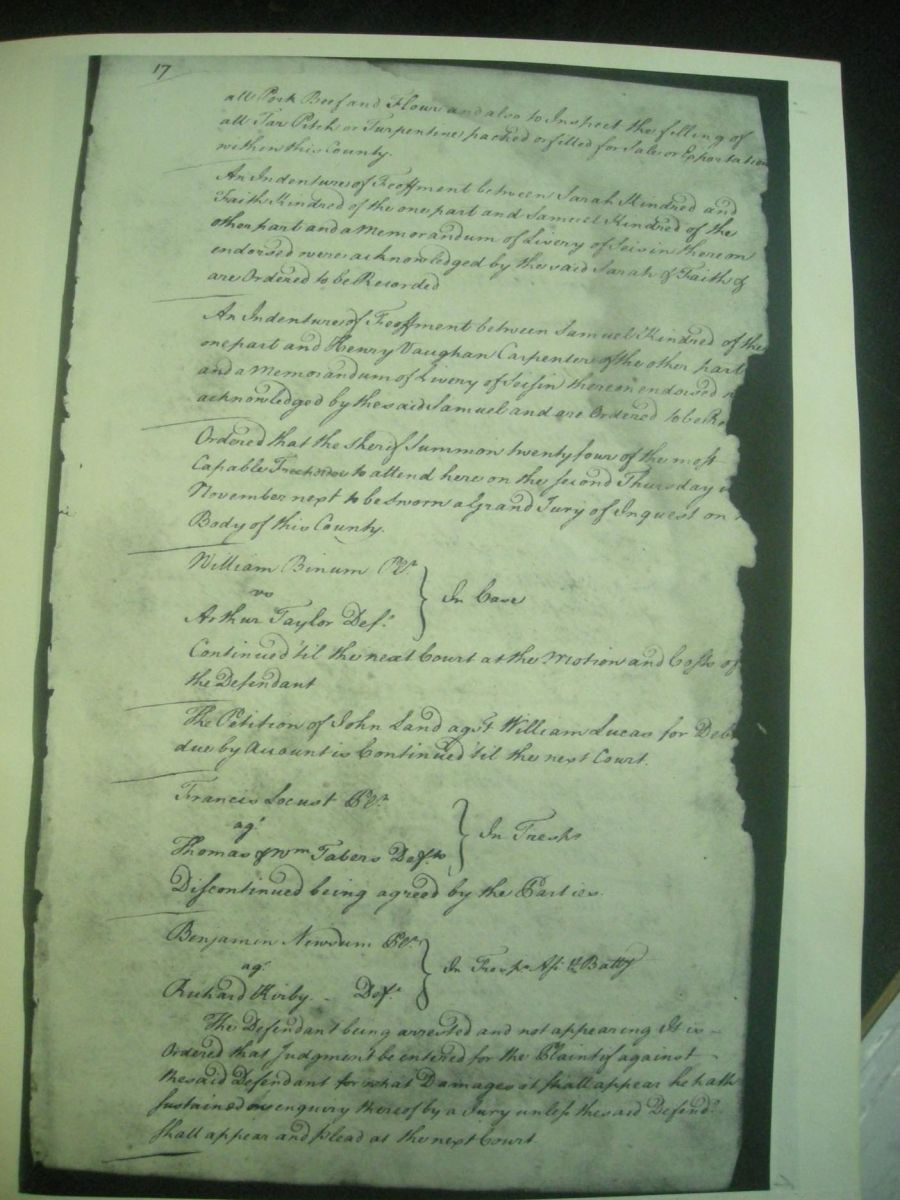 17
all Pork Beef and Flour and also to Inspect the filling of
all Tar Pitch or Turpentine packed or filled for Sale or Exportation
within this County.
An Indenture of Feoffment between Sarah Kindred and
Faith Kindred of the one part and Samuel Kindred of the
other part and a Memorandum of Livery of Seisin thereon
endorsed were acknowledged by the said Sarah & Faith &
are Ordered to be Recorded
An Indenture of Feoffment between Samuel Kindred of the
one part and Henry Vaughan Carpenter of the other part
and a Memorandum of Livery of Seisin thereon endorsed
acknowledged by the said Samuel and are Ordered to be Re
Ordered that the Sherif Summon twenty four of the most
Capable to attend here on the second Thursday
November next to be Sworn a Grand Jury of Inquest on
Body of this County.
William Binum Plt.
vs
In Case
Arthur Taylor Deft.
Continued til the next Court at the Motion and Costs of
the Defendant
The Petition of John Land agst William Lucas for Deb
due by Account is Continued til the next Court.
Francis Locust Plt.
agt
In Tresps
Thomas & Wm Tabers Defts
Discontinued being agreed by the Parties.
Benjamin Newsum Plt.
agt
In Tresps Ass & Batty
Richard Kirby Deft
The Defendant being arrested and not appearing It is
Ordered that Judgment be entered for the Plaintif against
the said Defendant for what Damages it shall appear he hath
sustained on enquiry thereof by a Jury unless the said Defendt
shall appear and plead at the next Court